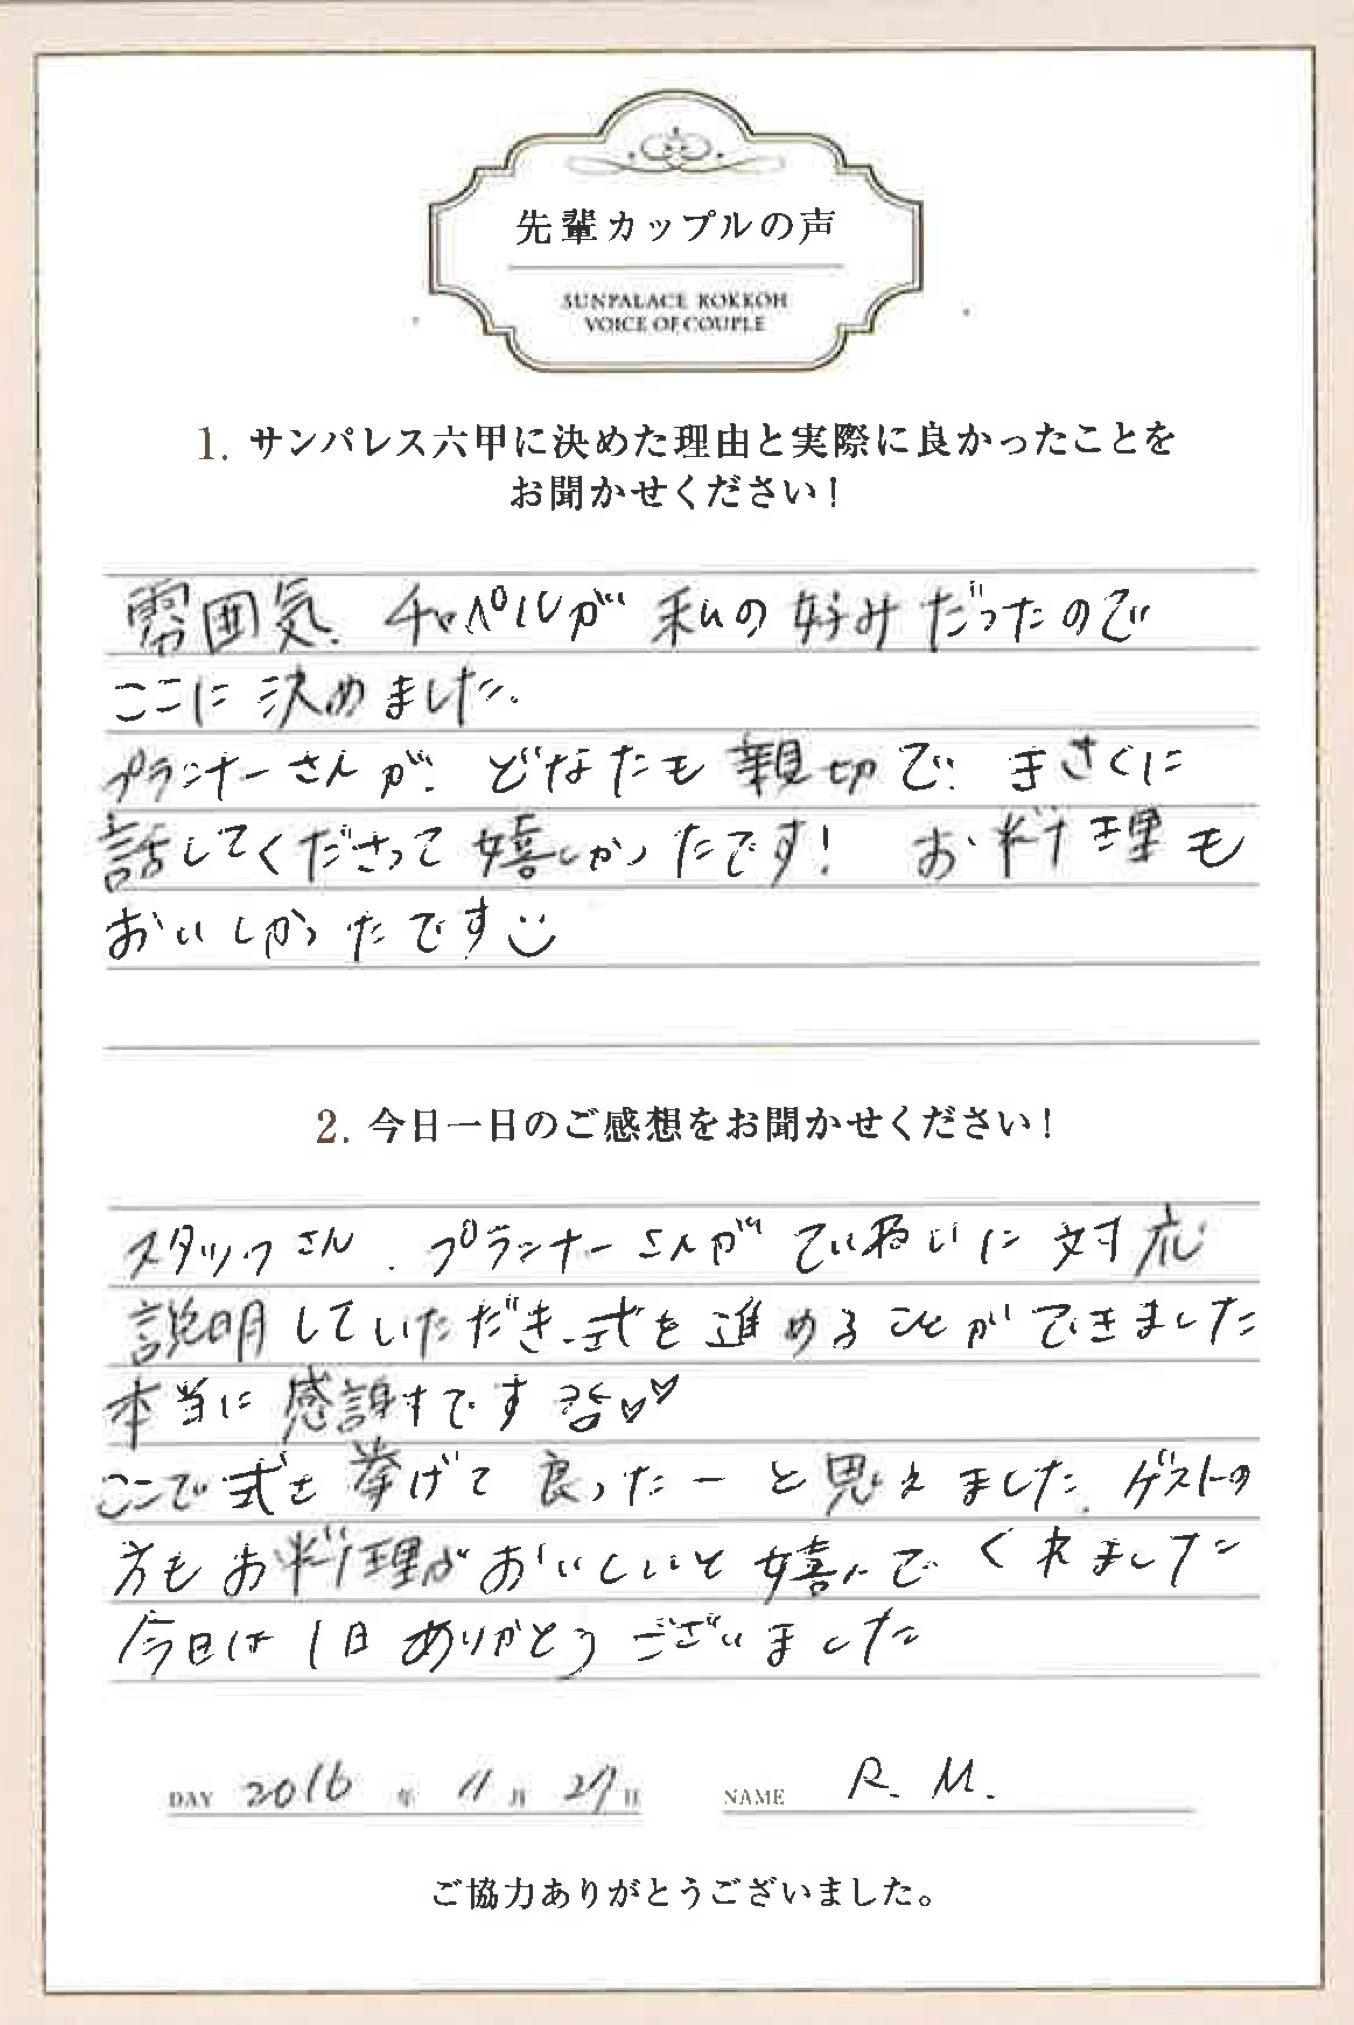 先輩カップルの声
SUNPALACE ROKKOH
VOICE OF COUPLE
1. サンパレス六甲に決めた理由と実際に良かったことを
お聞かせください!
雰囲気、チャペルが私の好みだったので
ここに決めました。
プランナーさんが、どなたも親切で、きさくに
話してくださって嬉しかったです! お料理も
おいしかったです
2. 今日一日のご感想をお聞かせください!
スタッフさん、プランナーさんがていねいに対応
説明していただき、式を進めることができました
本当に感謝です
ここで式を挙げて良ったーと思えました。ゲストの
方もお料理がおいしいと嬉んでくれました
今日は1日ありがとうございました
DAY 2016年 11月 27日 NAME R. M.
ご協力ありがとうございました。